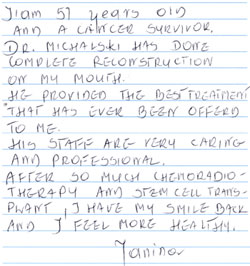 I am 51 years old
AND A CANCER SURVIVOR.
DR. MICHALSKI HAS DONE
COMPLETE RECONSTRUCTION
ON MY MOUTH.
HE PROVIDED THE BEST TREATMENT
THAT HAS EVER BEEN OFFERD
TO ME.
HIS STATE ARE VERY CARING
AND PROFESSIONAL.
AFTER SO MUCH CHEMORADIO-
THERAPY AND STEM CELL TRANS-
PLANT, I HAVE MY SMILE BACK
AND I FEEL MORE HEALTHY.
Janina